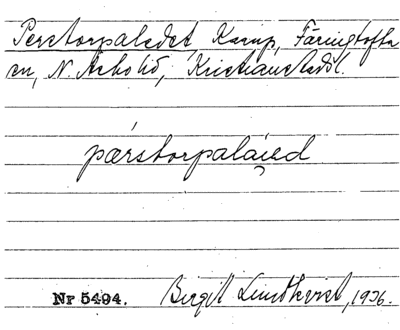 Perstorpaledet, Karup, Färingtofta
sn, N. Åsbo hd, Kristianstads l.
pærstorpalaied
Nr 5494. Birgit Lundkvist, 1936.